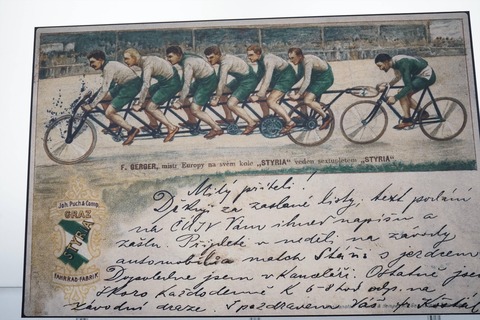 F. GERGER, mistr Europy na svém kole „STYRIA“ veden sextupletem „STYRIA“.
Joh. Puch & Comp.
GRAZ
STYRIA
FAHRRAD-FABRIK
Milý příteli!
Děkuji za zaslané listy, text podám
na Vám ihned napíšu a
zašlu. Přijdete v neděli na závody
automobilia match s jezdcem
Dopoledne jsem v kanceláři. Ostatně jsem
skoro každodenně k 6-8 hod odp. na
závodní dráze. S pozdravem Váš